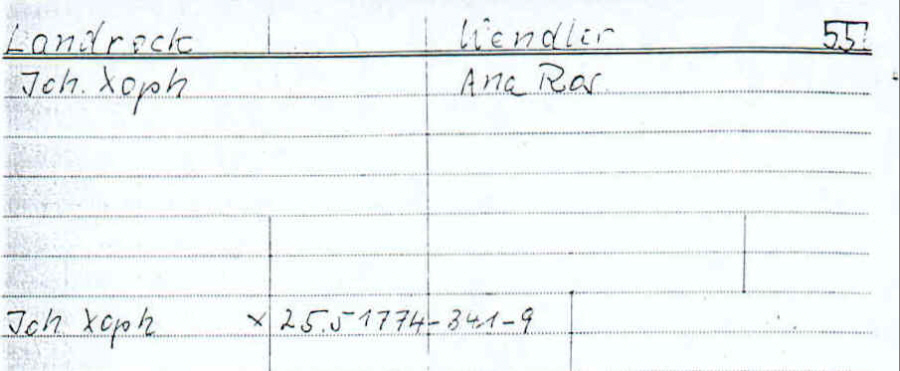 Landrock Wendler 55.
Joh. Xoph Ana Ros.
Joh Xoph × 25.5 1774-341-9